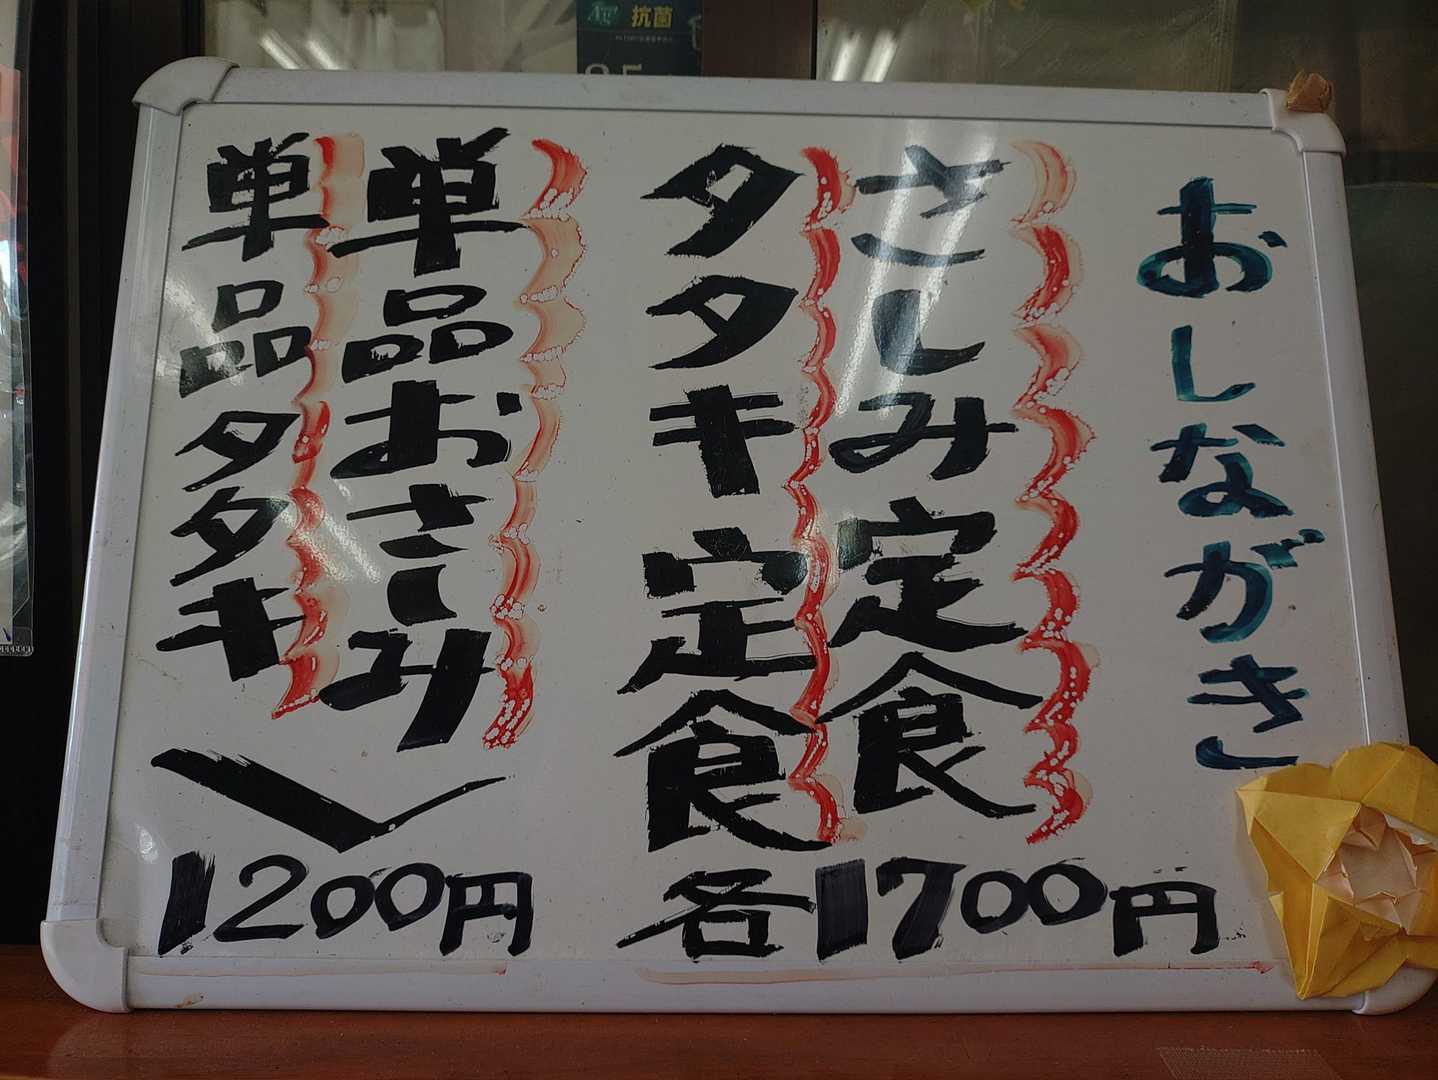 Ag 抗菌
おしながき
さしみ定食
タタキ定食
各1700円
単品おさしみ
単品タタキ
1200円